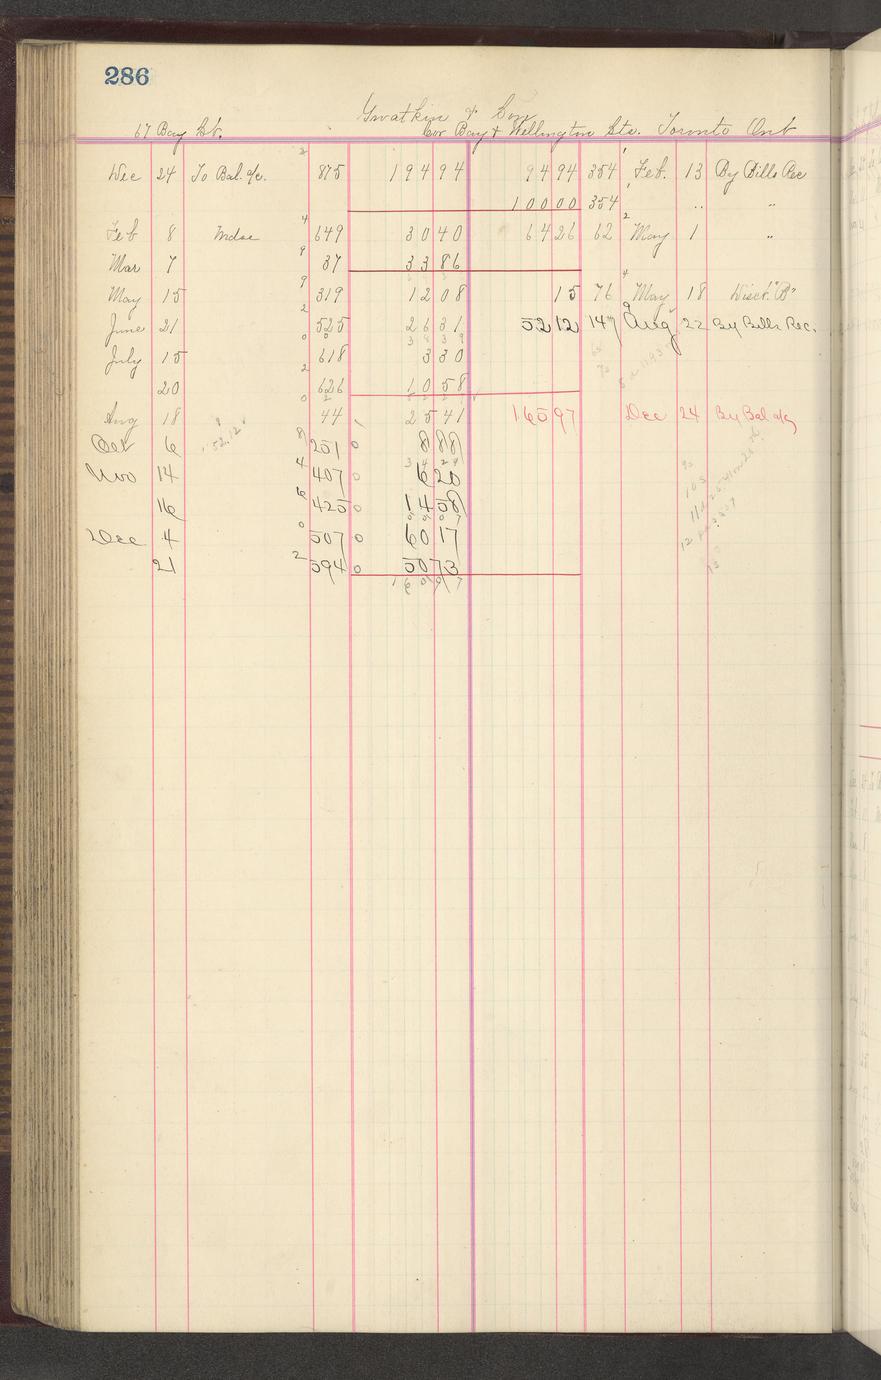 286
Gwatkin & Son
67 Bay St. Cor Bay & Wellington Sts. Toronto Ont
Dec 24 To Bal. a/c. 2 875 194 94 94 94 354 1 Feb. 13 By Bills Rec
100 00 354 1 " "
Feb 8 Mdse 4 649 30 40 64 26 62 2 May 1 "
Mar 7 9 37 33 86
May 15 9 319 12 08 15 76 4 May 18 Disct. "B"
June 21 2 525 26 31 52 12 147 9 Aug 22 By Bills Rec.
38 39
July 15 0 618 3 30
20 2 626 10 58
Aug 18 0 44 25 41 165 97 Dec 24 By Bal a/c
52.12
Oct 6 8 251 0 8 88
34 29
Nov 14 4 407 0 6 20
16 6 425 0 14 58
Dec 4 0 507 0 60 17
21 2 594 0 50 73
160 97